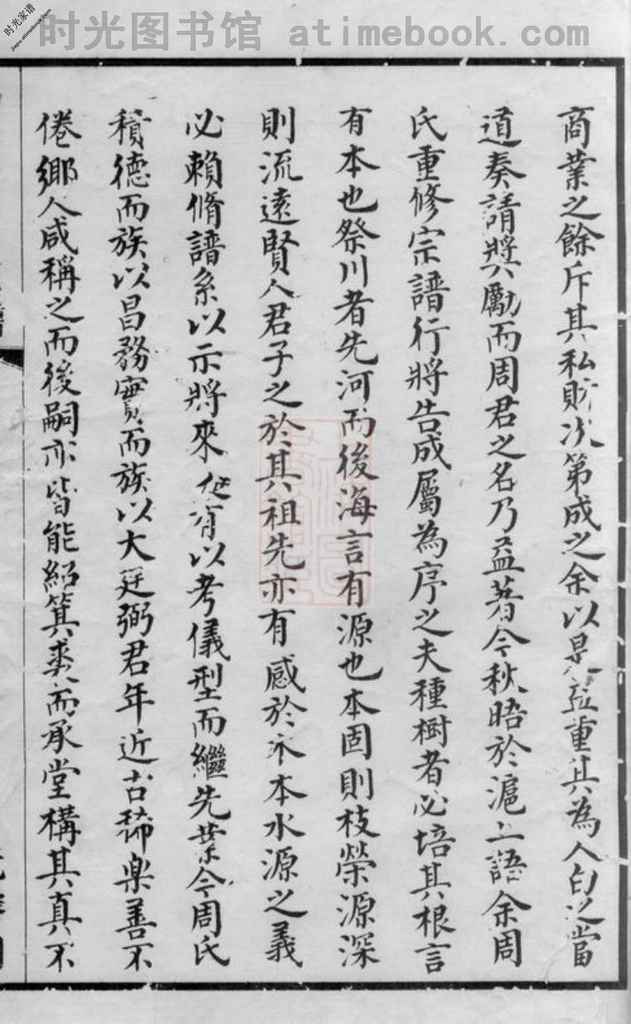 时光图书馆 atimebook.com
时光家谱
商業之餘斥其私財次第成之余以是益重其為人白之當
道奏請獎勵而周君之名乃益著今秋晤於滬上語余周
氏重修宗譜行將告成屬為序之夫種樹者必培其根言
有本也祭川者先河而後海言有源也本固則枝榮源深
則流遠賢人君子之於其祖先亦有感於木本水源之義
必賴脩譜系以示將來使有以考儀型而繼先業今周氏
積德而族以昌務實而族以大廷弼君年近古稀樂善不
倦鄉人咸稱之而後嗣亦皆能紹箕裘而承堂構其真不